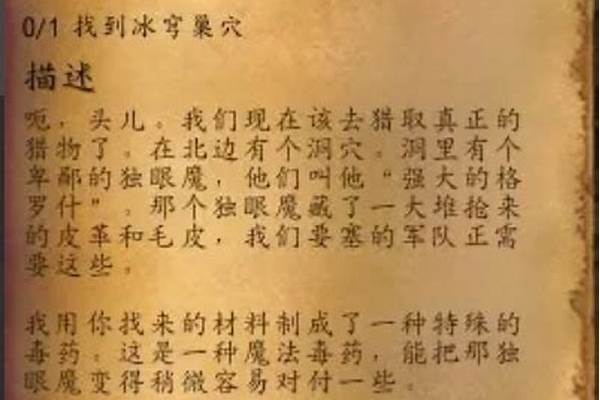 0/1 找到冰穹巢穴
描述
呃，头儿。我们现在该去猎取真正的
猎物了。在北边有个洞穴。洞里有个
卑鄙的独眼魔，他们叫他“强大的格
罗什”。那个独眼魔藏了一大堆抢来
的皮革和毛皮，我们要塞的军队正需
要这些。
我用你找来的材料制成了一种特殊的
毒药。这是一种魔法毒药，能把那独
眼魔变得稍微容易对付一些。